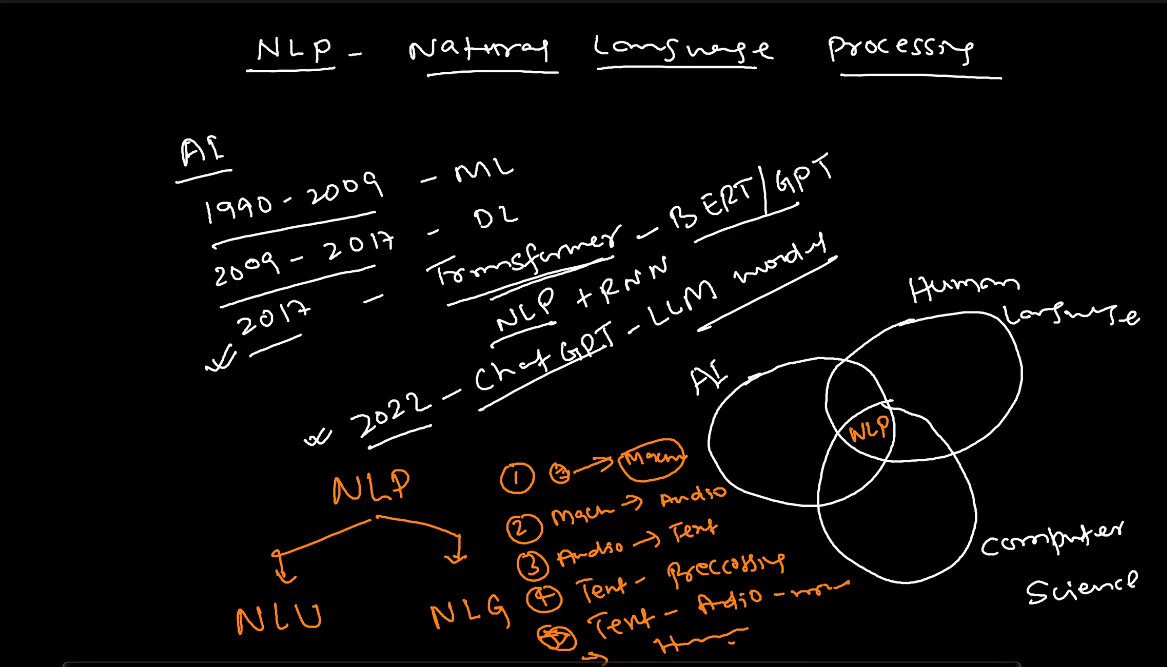 NLP - Natural Language Processing
AI
1990 - 2009 - ML
2009 - 2017 - DL
2017 - Transformer - BERT/GPT
NLP + RNN
2022 - ChatGPT - LLM model
Human
Language
AI
NLP
Computer
Science
NLP
NLU NLG
① →
② → Audio
③ Audio → Text
④ Text -
⑤ Text -